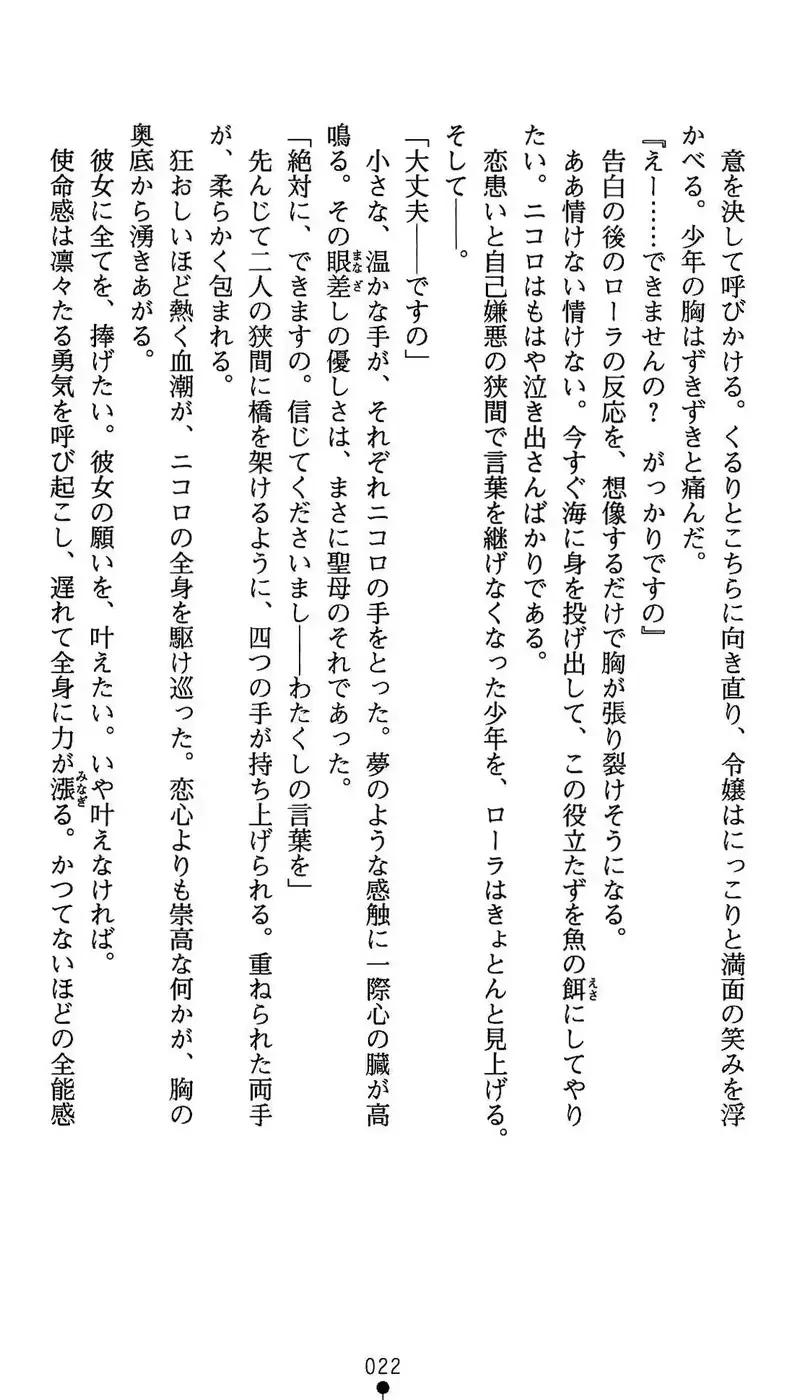 意を決して呼びかける。くるりとこちらに向き直り、令嬢はにっこりと満面の笑みを浮
かべる。少年の胸はずきずきと痛んだ。
『えー……できませんの？　がっかりですの』
　告白の後のローラの反応を、想像するだけで胸が張り裂けそうになる。
　ああ情けない情けない。今すぐ海に身を投げ出して、この役立たずを魚の餌にしてやり
たい。ニコロはもはや泣き出さんばかりである。
　恋患いと自己嫌悪の狭間で言葉を継げなくなった少年を、ローラはきょとんと見上げる。
そして――。
「大丈夫――ですの」
　小さな、温かな手が、それぞれニコロの手をとった。夢のような感触に一際心の臓が高
鳴る。その眼差しの優しさは、まさに聖母のそれであった。
「絶対に、できますの。信じてくださいまし――わたくしの言葉を」
　先んじて二人の狭間に橋を架けるように、四つの手が持ち上げられる。重ねられた両手
が、柔らかく包まれる。
　狂おしいほど熱く血潮が、ニコロの全身を駆け巡った。恋心よりも崇高な何かが、胸の
奥底から湧きあがる。
　彼女に全てを、捧げたい。彼女の願いを、叶えたい。いや叶えなければ。
　使命感は凛々たる勇気を呼び起こし、遅れて全身に力が漲る。かつてないほどの全能感
022